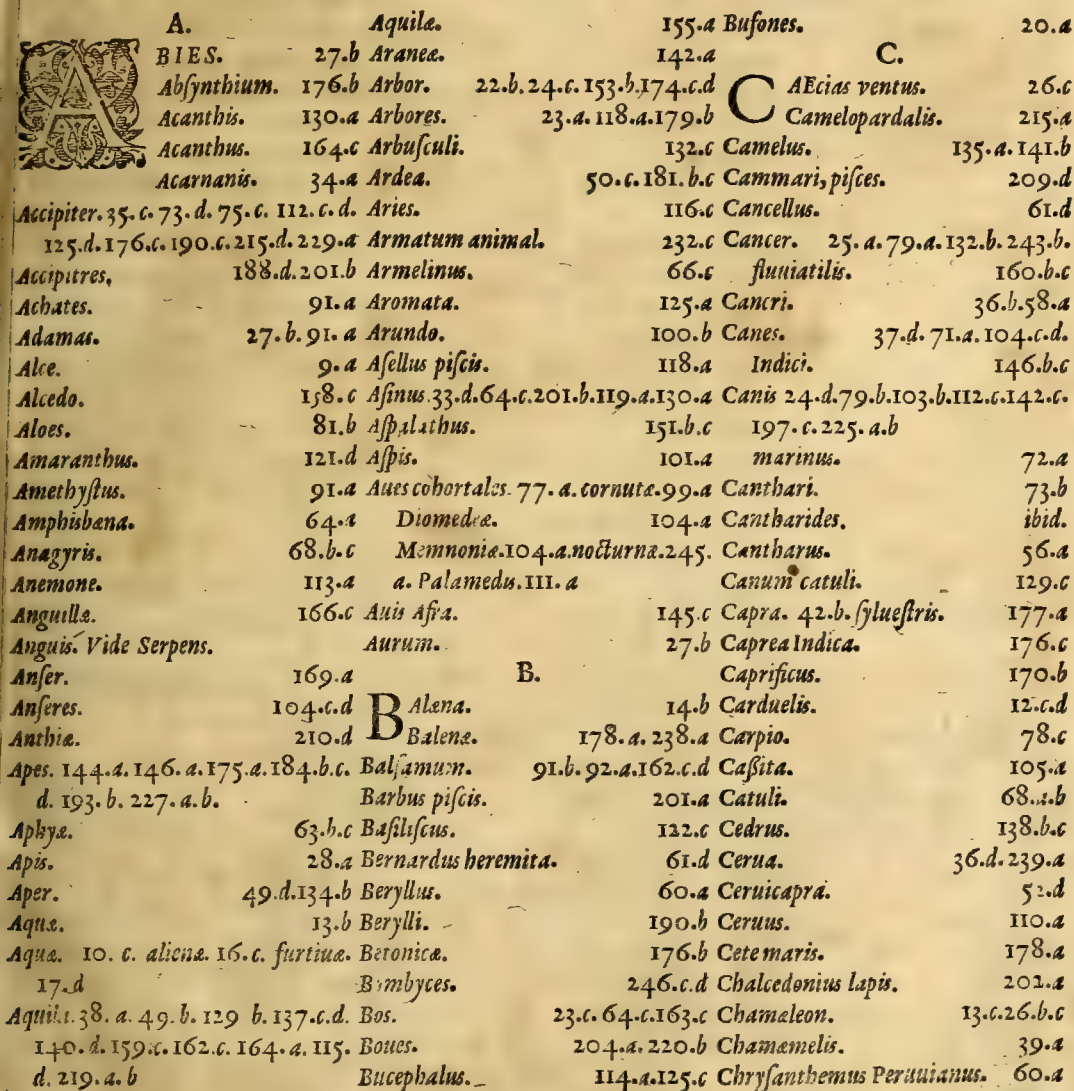 A.
ABIES. 27.b
Abſynthium. 176.b
Acanthis. 130.a
Acanthus. 164.c
Acarnanis. 34.a
Accipiter. 35.c. 73.d. 75.c. 112.c.d.
125.d. 176.c. 190.c. 215.d. 229.a
Accipitres, 188.d. 201.b
Achates. 91.a
Adamas. 27.b. 91.a
Alce. 9.a
Alcedo. 158.c
Aloes. 81.b
Amaranthus. 121.d
Amethyſtus. 91.a
Amphisbæna. 64.a
Anagyris. 68.b.c
Anemone. 113.a
Anguillæ. 166.c
Anguis. Vide Serpens.
Anſer. 169.a
Anſeres. 104.c.d
Anthiæ. 210.d
Apes. 144.a. 146.a. 175.a. 184.b.c.
d. 193.b. 227.a.b.
Aphyæ. 63.b.c
Apis. 28.a
Aper. 49.d. 134.b
Aquæ. 13.b
Aquæ. 10.c. alienæ. 16.c. furtiuæ.
17.d
Aquila. 38.a. 49.b. 129 b. 137.c.d.
140.d. 159.c. 162.c. 164.a. 115.
d. 219.a.b
Aquilæ. 155.a
Araneæ. 142.a
Arbor. 22.b. 24.c. 153.b. 174.c.d
Arbores. 23.a. 118.a. 179.b
Arbuſculi. 132.c
Ardea. 50.c. 181.b.c
Aries. 116.c
Armatum animal. 232.c
Armelinus. 66.c
Aromata. 125.a
Arundo. 100.b
Aſellus piſcis. 118.a
Aſinus. 33.d. 64.c. 201.b. 119.a. 130.a
Aſpalathus. 151.b.c
Aſpis. 101.a
Aues cohortales. 77.a. cornutæ. 99.a
Diomedeæ. 104.a
Memnoniæ. 104.a. nocturnæ. 245.
a. Palamedis. 111.a
Auis Afra. 145.c
Aurum. 27.b
B.
BAlæna. 14.b
Balenæ. 178.a. 238.a
Balſamum. 91.b. 92.a. 162.c.d
Barbus piſcis. 201.a
Baſiliſcus. 122.c
Bernardus heremita. 61.d
Beryllus. 60.a
Berylli. 190.b
Betonicæ. 176.b
Bombyces. 246.c.d
Bos. 23.c. 64.c. 163.c
Boues. 204.a. 220.b
Bucephalus. 114.a. 125.c
Bufones. 20.a
C.
CAEcias ventus. 26.c
Camelopardalis. 215.a
Camelus. 135.a. 141.b
Cammari, piſces. 209.d
Cancellus. 61.d
Cancer. 25.a. 79.a. 132.b. 243.b.
fluuiatilis. 160.b.c
Cancri. 36.b. 58.a
Canes. 37.d. 71.a. 104.c.d.
Indici. 146.b.c
Canis 24.d. 79.b. 103.b. 112.c. 142.c.
197.c. 225.a.b
marinus. 72.a
Canthari. 73.b
Cantharides. ibid.
Cantharus. 56.a
Canum catuli. 129.c
Capra. 42.b. ſylueſtris. 177.a
Caprea Indica. 176.c
Caprificus. 170.b
Carduelis. 12.c.d
Carpio. 78.c
Caßita. 105.a
Catuli. 68.a.b
Cedrus. 138.b.c
Cerua. 36.d. 239.a
Ceruicapra. 52.d
Ceruus. 110.a
Cete maris. 178.a
Chalcedonius lapis. 202.a
Chamæleon. 13.c. 26.b.c
Chamæmelis. 39.a
Chryſanthemus Peruuianus. 60.a